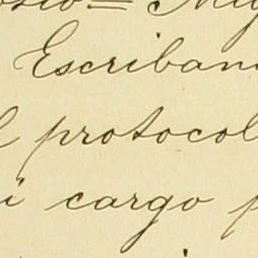 Escriban
l protocol
i cargo p